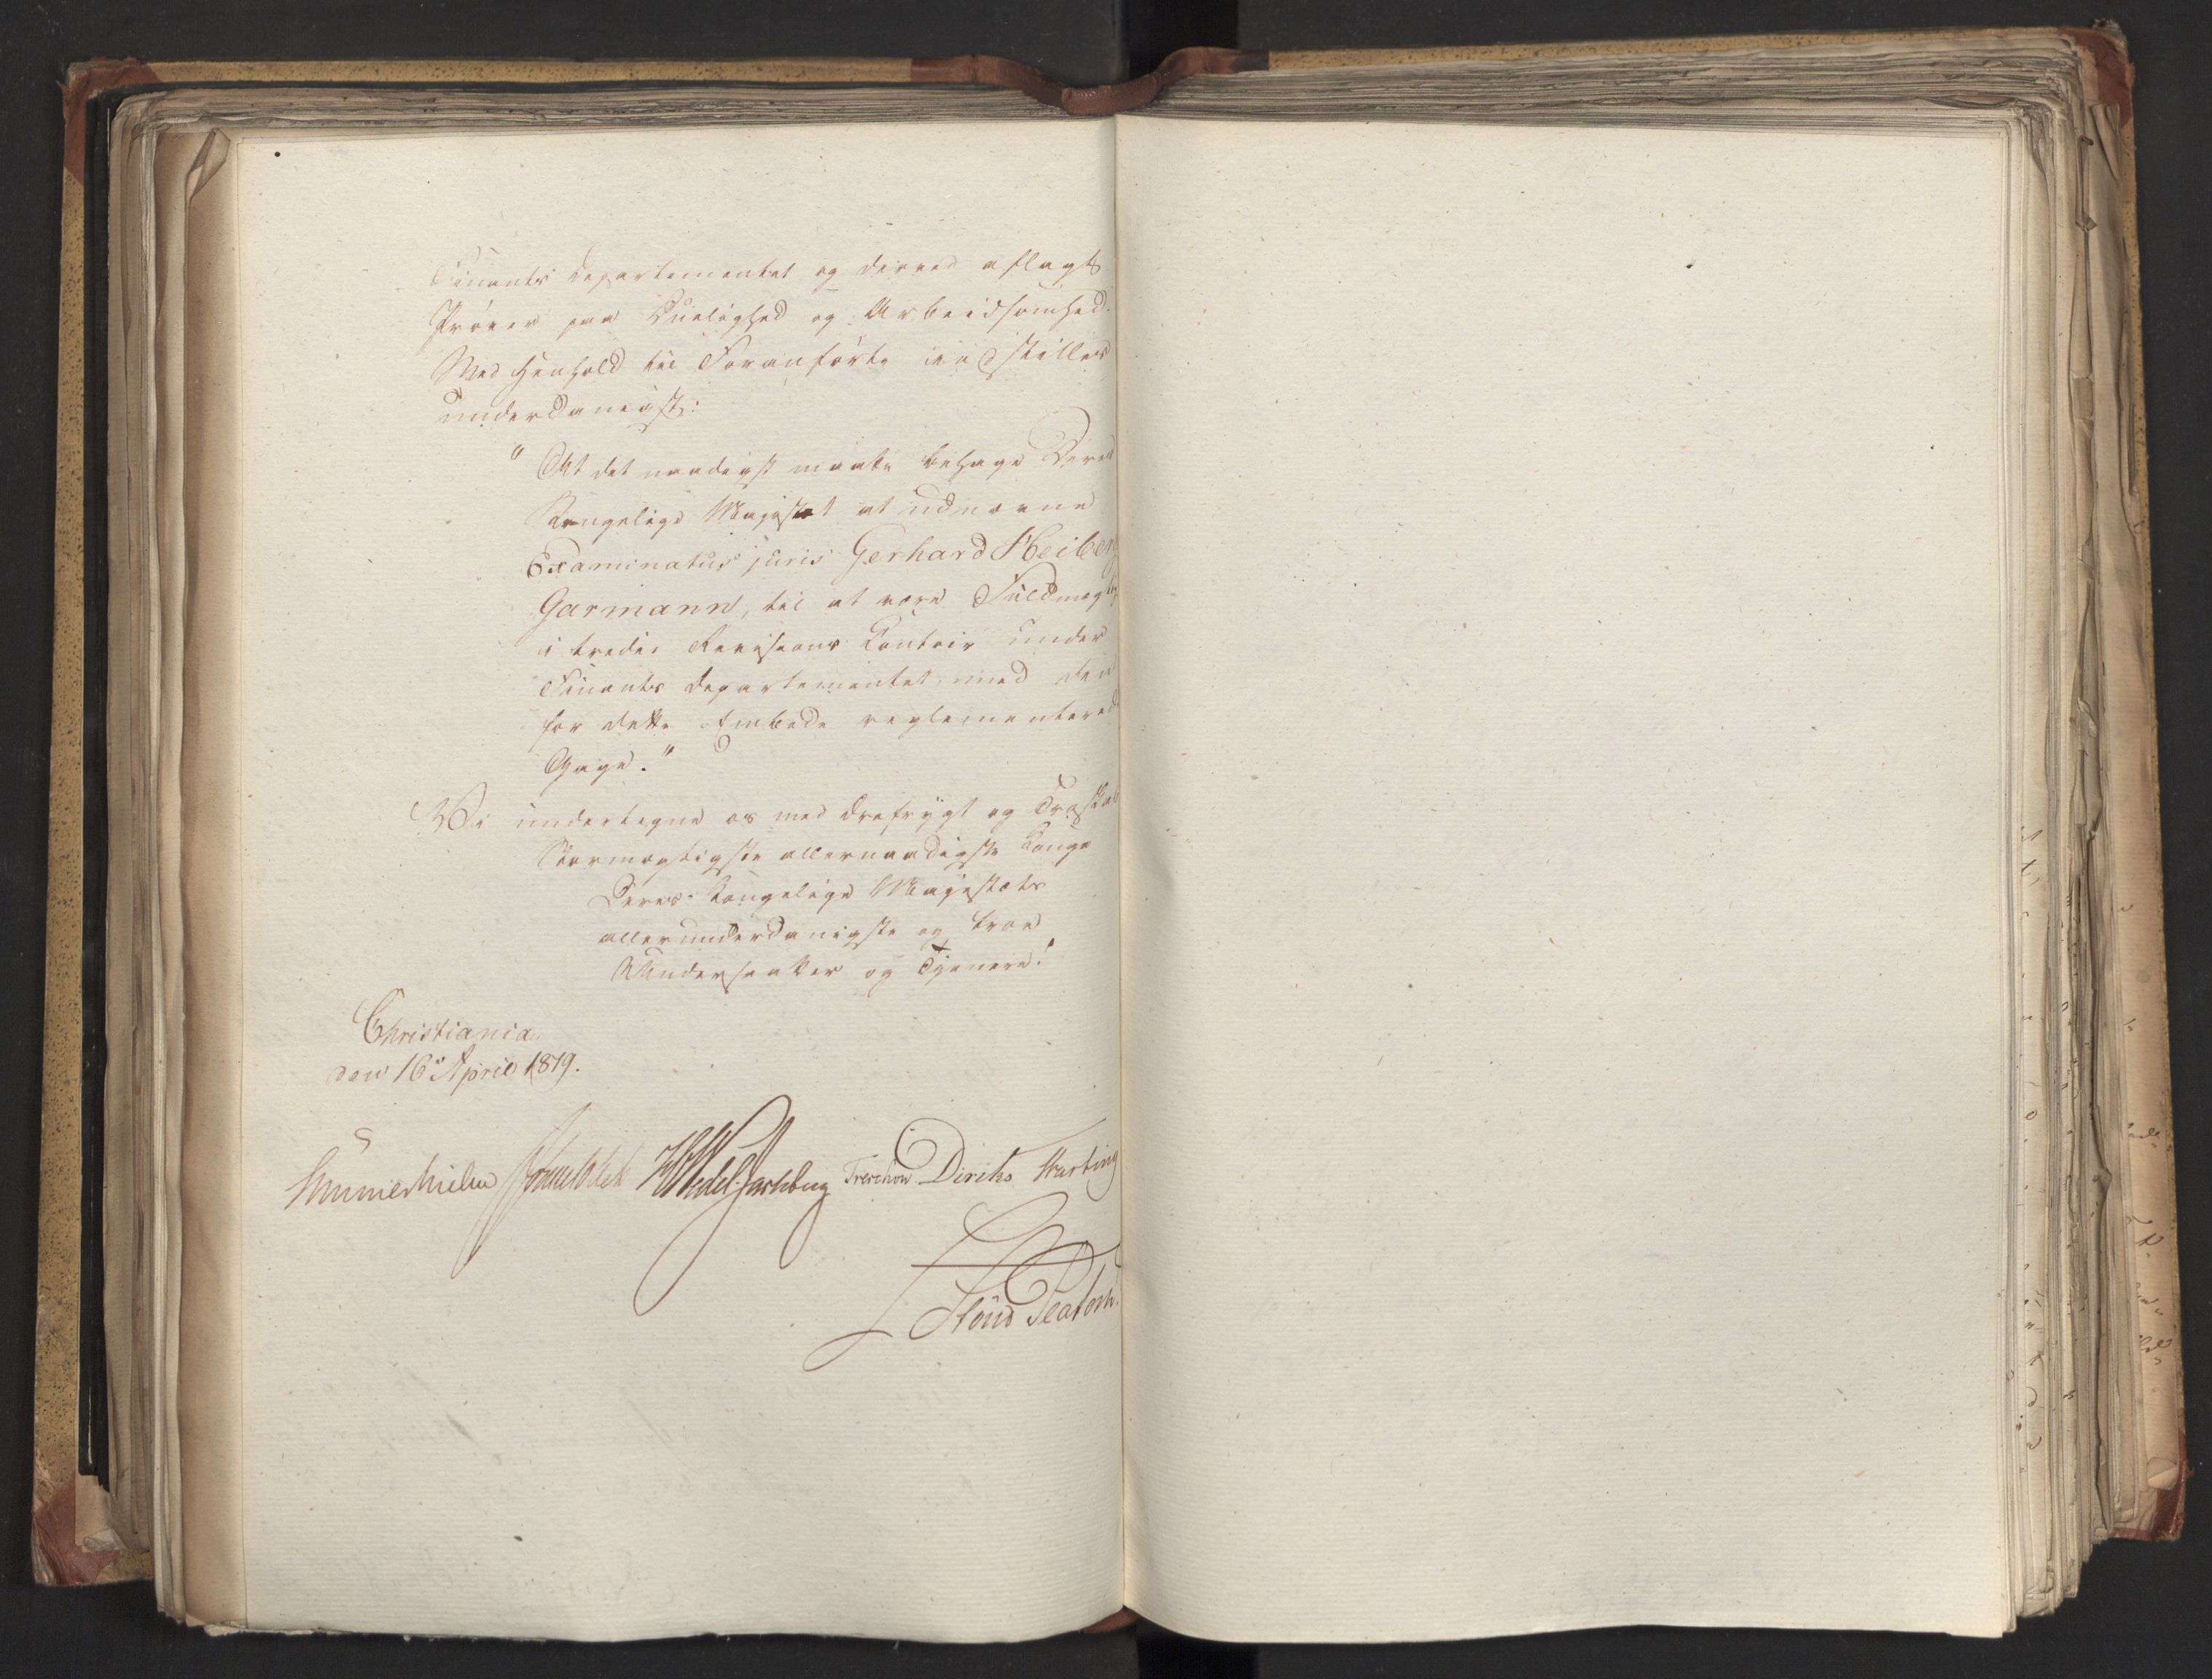 Finants Departementet og derved aflagt
Prøver paa Duelighed og Arbeidsomhed.
Med Henhold til Foranførte indstilles
underdanigst:
"At det naadigst maatte behage Deres
Kongelige Majestæt at udnævne
Examinatus juris Gerhard Heiberg
Garmann, til at være Fuldmægtig
i tredie Revisions Contoir under
Finants Departementet, med den
for dette Embede reglementered
Gage."
Vi undertegne os med Ærefrygt og Troskab
Stormægtigste allernaadigste Konge
Deres Kongelige Majestæts
allerunderdanigste og troe
Undersaatter og Tjenere!
Christiania
den 16 April 1819.
Sommerhielm HWedel Jarlsberg Treschow Diriks Hasting
Stoud Platou